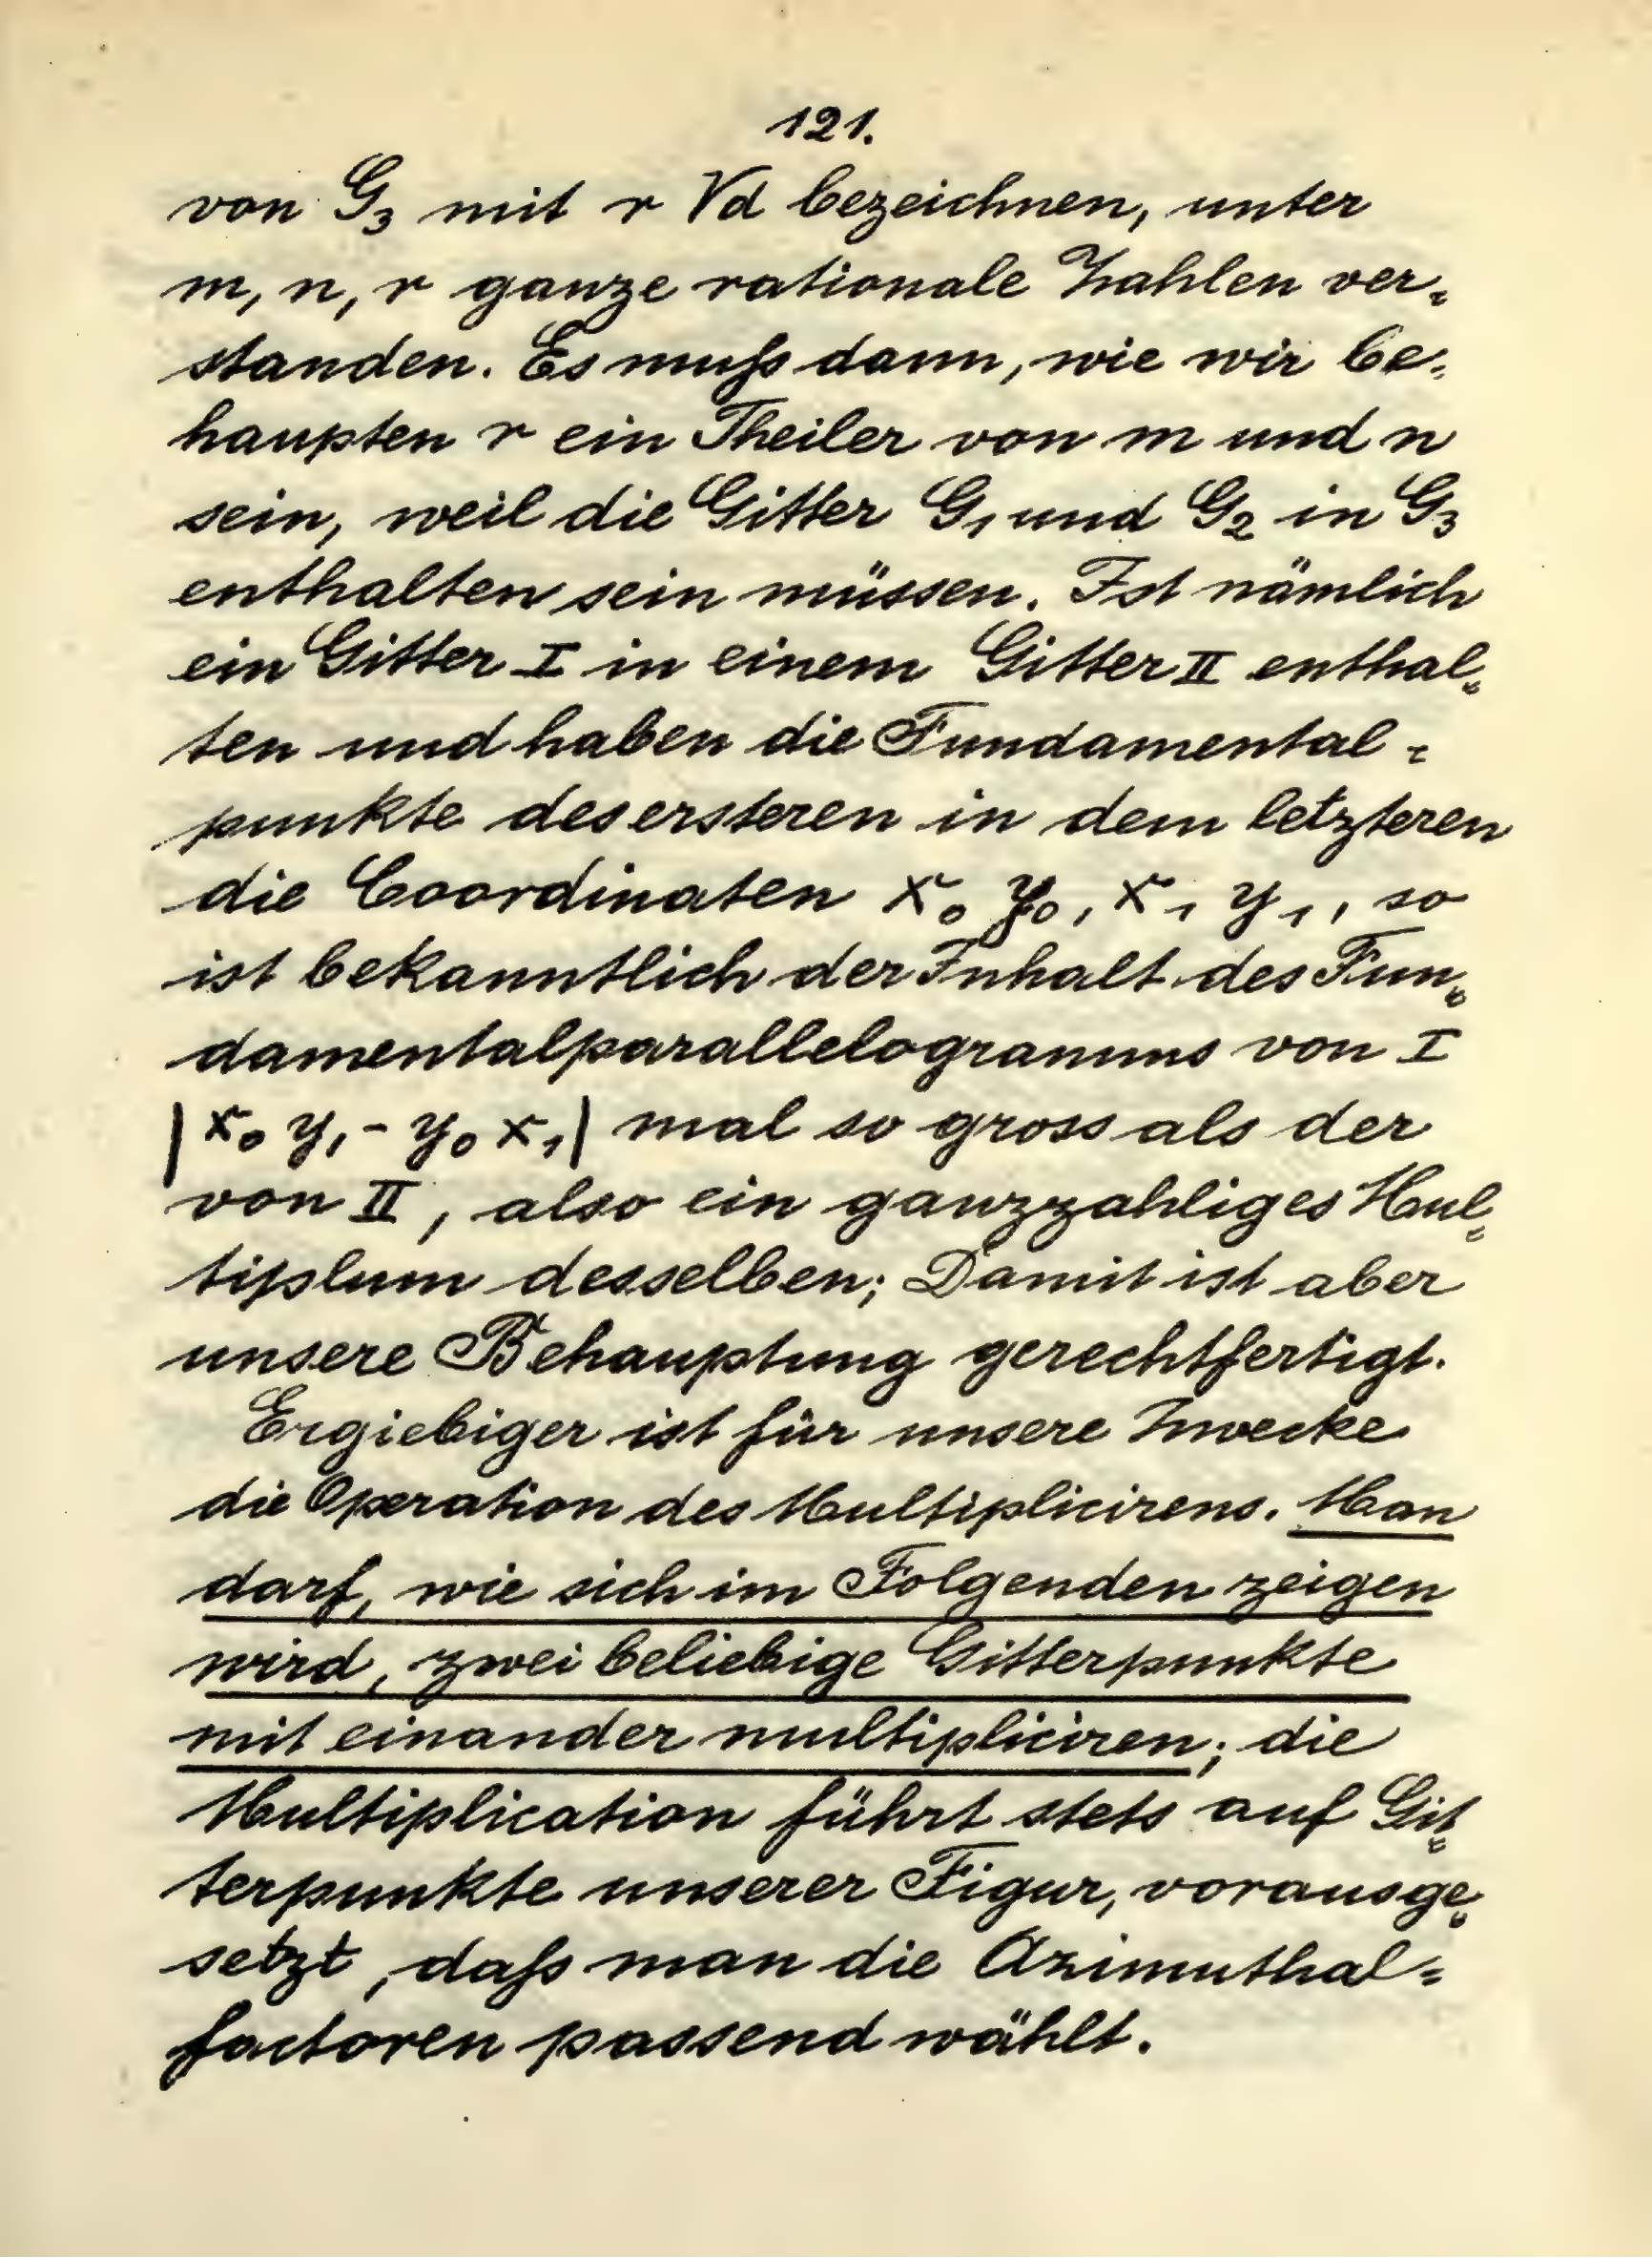 121.
von G₃ mit r √d bezeichnen, unter
m, n, r ganze rationale Zahlen ver=
standen. Es muſs dann, wie wir be=
haupten r ein Theiler von m und n
sein, weil die Gitter G₁ und G₂ in G₃
enthalten sein müssen. Ist nämlich
ein Gitter I in einem Gitter II enthal=
ten und haben die Fundamental=
punkte des ersteren in dem letzteren
die Coordinaten x₀ y₀, x₁ y₁, so
ist bekanntlich der Inhalt des Fun=
damentalparallelogramms von I
|x₀ y₁ - y₀ x₁| mal so gross als der
von II, also ein ganzzahliges Mul=
tiplum desselben; Damit ist aber
unsere Behauptung gerechtfertigt.
Ergiebiger ist für unsere Zwecke
die Operation des Multiplicirens. Man
darf, wie sich im Folgenden zeigen
wird, zwei beliebige Gitterpunkte
mit einander multipliciren; die
Multiplication führt stets auf Git=
terpunkte unserer Figur, vorausge=
setzt, daſs man die Azimuthal=
factoren passend wählt.